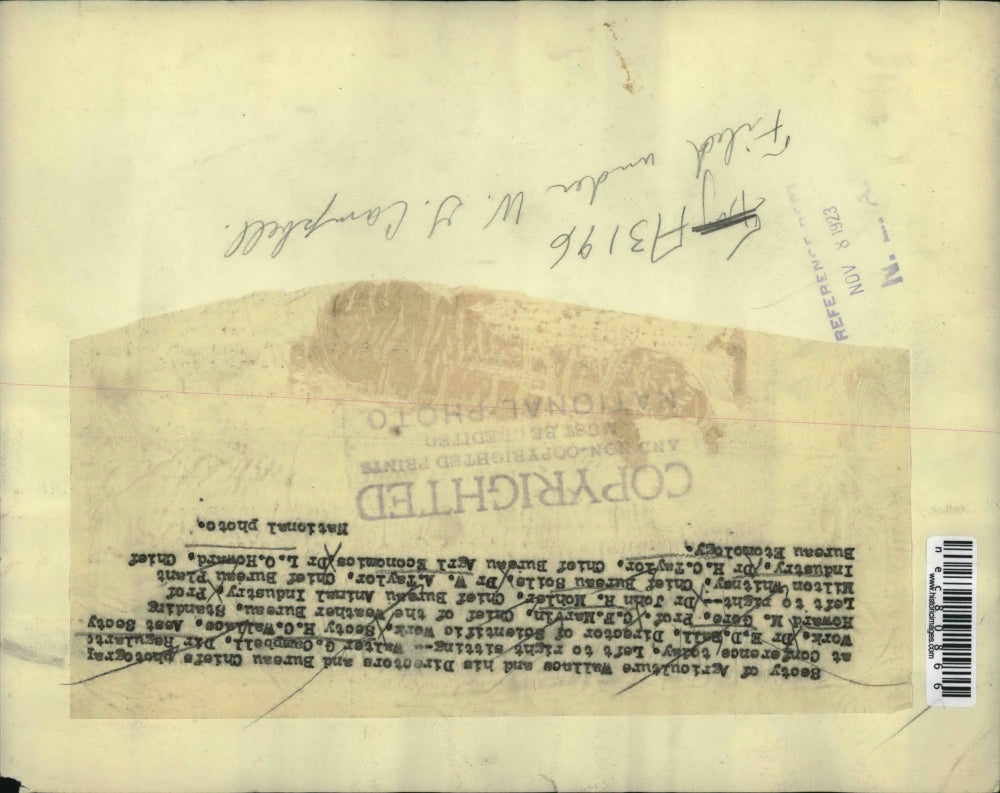 Secty of Agriculture Wallace and his Directors and Bureau Chiefs photograp
at Conference today. Left to right sitting-- Walter G. Campbell, Dir Regulatro
Work, Dr E.D.Ball, Director of Scientific Work, Secty H.C.Wallace, Asst Secty
Howard M. Gore, Prof C.F.Marvin, Chief of the Weather Bureau, Standing
Left to right-- Dr John R. Mohler, Chief Bureau Animal Industry, Prof
Milton Whitney, Chief Bureau Soils, Dr W. A.Taylor, Chief Bureau Plant
Industry, Dr H.C.Taylor, Chief Bureau Agrl Economics, Dr L.O.Howard, Chief
Bureau Etomology.
National photo.
COPYRIGHTED
AND NON-COPYRIGHTED PRINTS
MUST BE CREDITED
NATIONAL PHOTO
A3196
Filed under W. G. Campbell.
REFERENCE
NOV 8 1923
N.
www.historicimages.com
nef80866